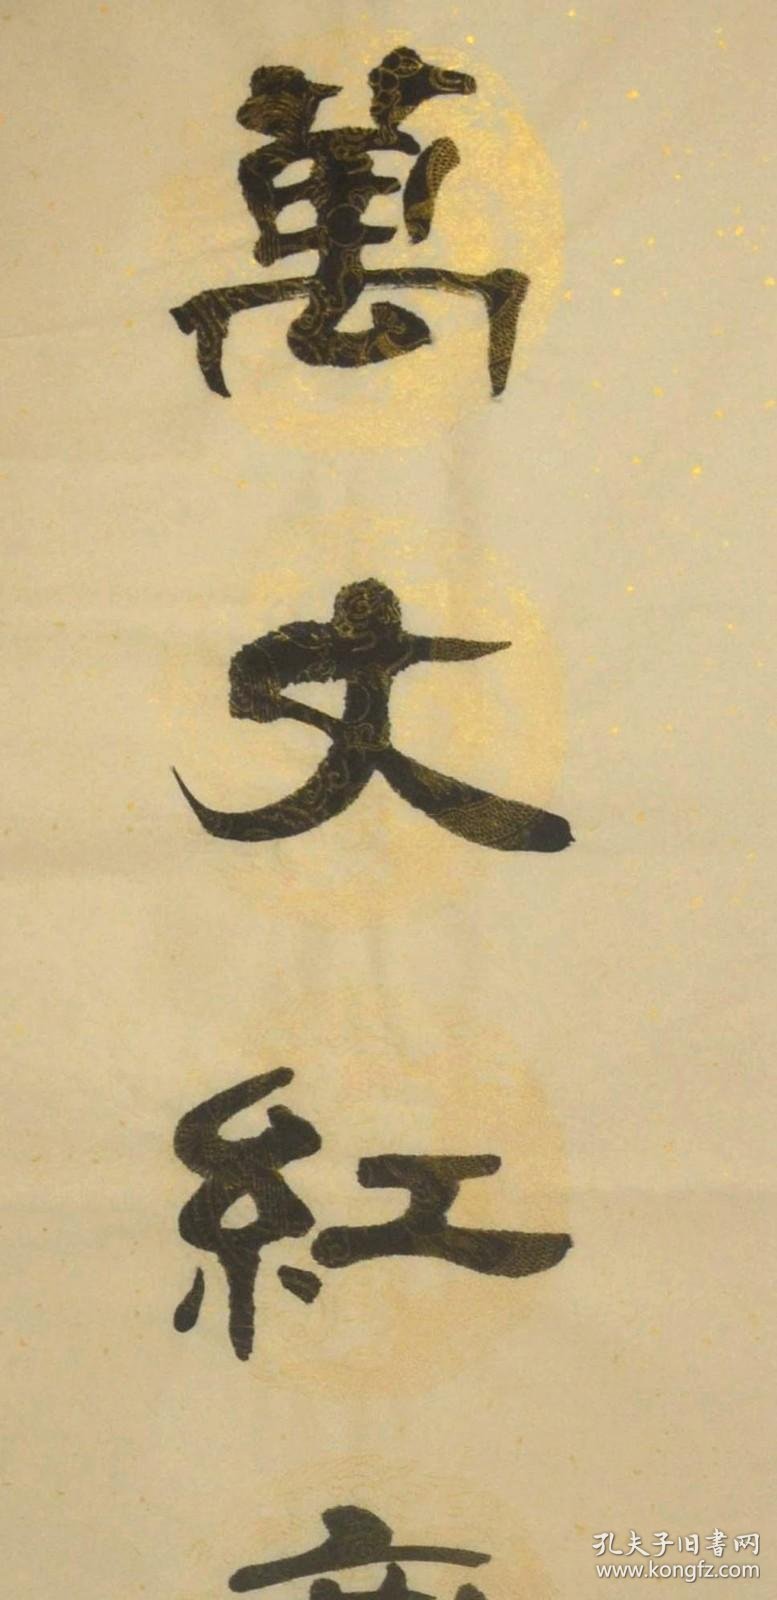 萬丈紅
孔夫子旧書网
www.kongfz.com